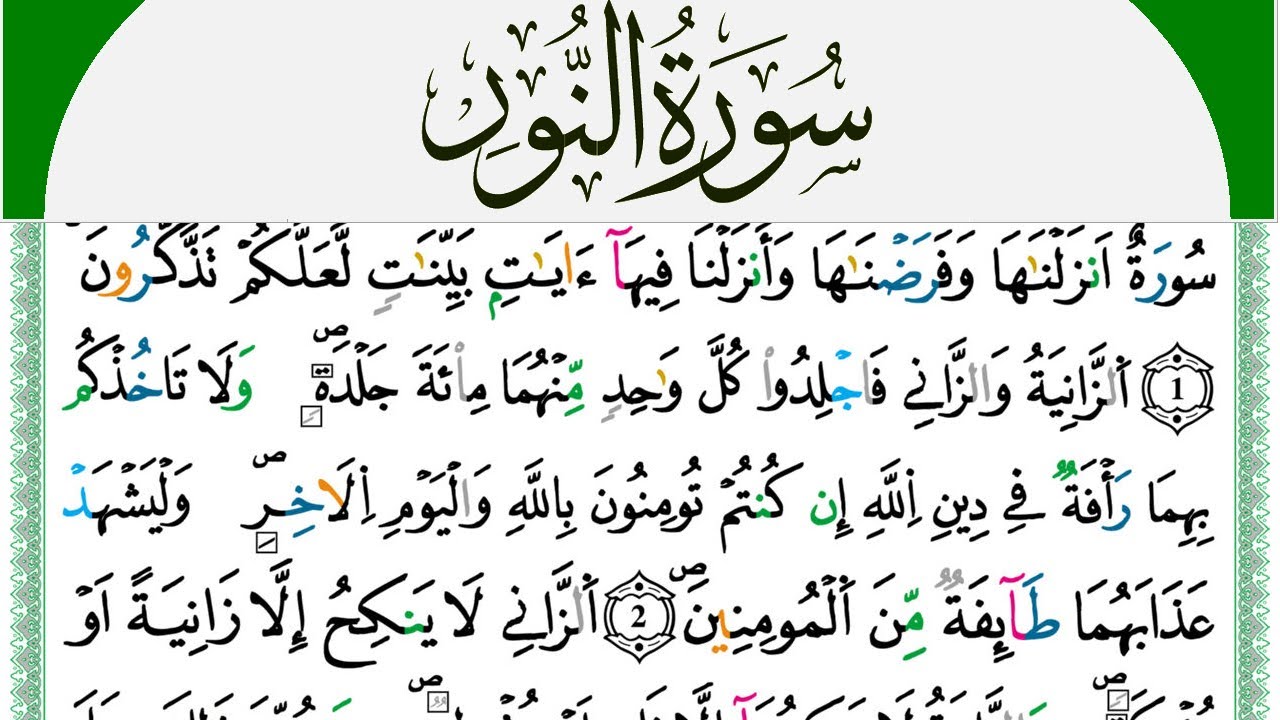 سُورَةُ النُّورِ
سُورَةٌ اَنزَلْنَٰهَا وَفَرَضْنَٰهَا وَأَنزَلْنَا فِيهَآ ءَايَٰتِۢ بَيِّنَٰتٖ لَّعَلَّكُمْ تَذَّكَّرُونَ
1 اَ۬لزَّانِيَةُ وَالزَّانِے فَاجْلِدُواْ كُلَّ وَٰحِدٖ مِّنْهُمَا مِاْئَةَ جَلْدَةٖۖ وَلَا تَاخُذْكُم
بِهِمَا رَأْفَةٞ فِے دِينِ اِ۬للَّهِ إِن كُنتُمْ تُومِنُونَ بِاللَّهِ وَالْيَوْمِ اِ۬لَاخِرِۖ وَلْيَشْهَدْ
عَذَابَهُمَا طَآئِفَةٞ مِّنَ اَ۬لْمُومِنِينَۖ 2 اَ۬لزَّانِے لَا يَنكِحُ إِلَّا زَانِيَةً اَوْ